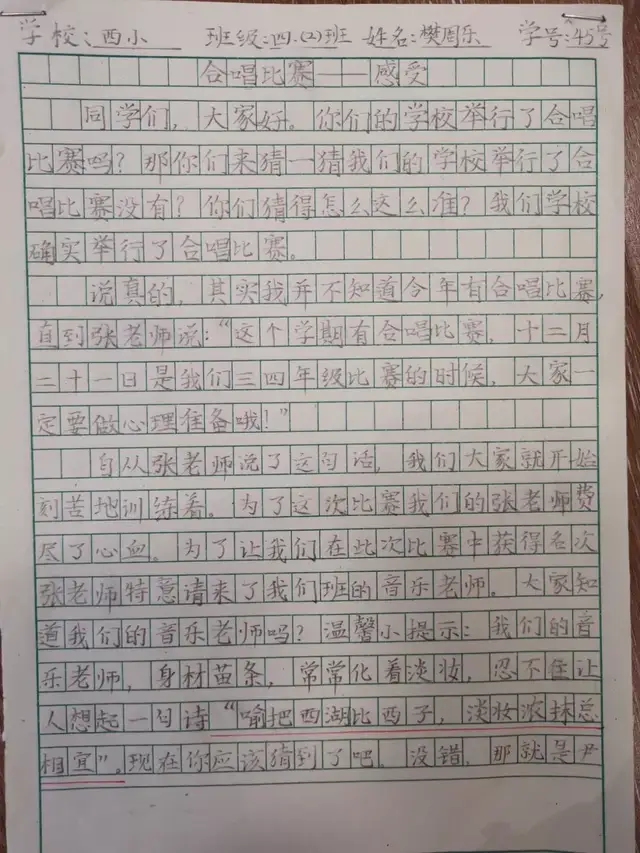 学校:西小 班级:四.(2)班 姓名:樊周乐 学号:45号
合唱比赛——感受
同学们，大家好。你们的学校举行了合唱
比赛吗？那你们来猜一猜我们的学校举行了合
唱比赛没有？你们猜得怎么这么准？我们学校
确实举行了合唱比赛。
说真的，其实我并不知道今年有合唱比赛，
直到张老师说：“这个学期有合唱比赛，十二月
二十一日是我们三四年级比赛的时候，大家一
定要做心理准备哦！”
自从张老师说了这句话，我们大家就开始
刻苦地训练着。为了这次比赛我们的张老师费
尽了心血。为了让我们在此次比赛中获得名次
张老师特意请来了我们班的音乐老师。大家知
道我们的音乐老师吗？温馨小提示：我们的音
乐老师，身材苗条，常常化着淡妆，忍不住让
人想起一句诗“喻把西湖比西子，淡妆浓抹总
相宜”。现在你应该猜到了吧。没错，那就是尹